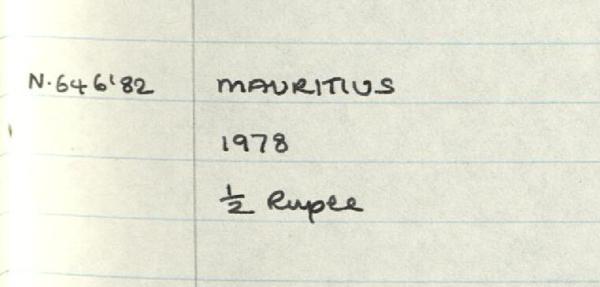 N.646'82 MAURITIUS
1978
½ Rupee